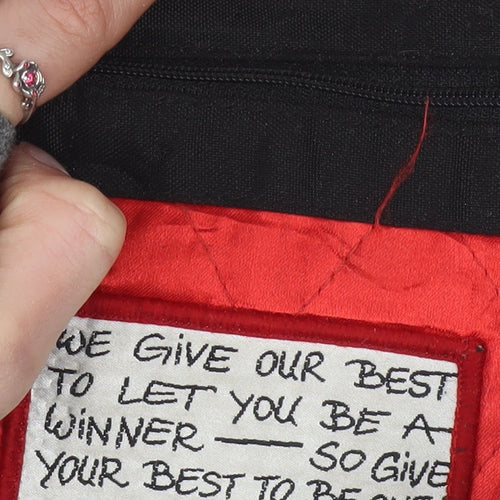 WE GiVE OUR BEST
TO LET YOU BE A
WiNNER — SO GiVE
YOUR BEST TO BE